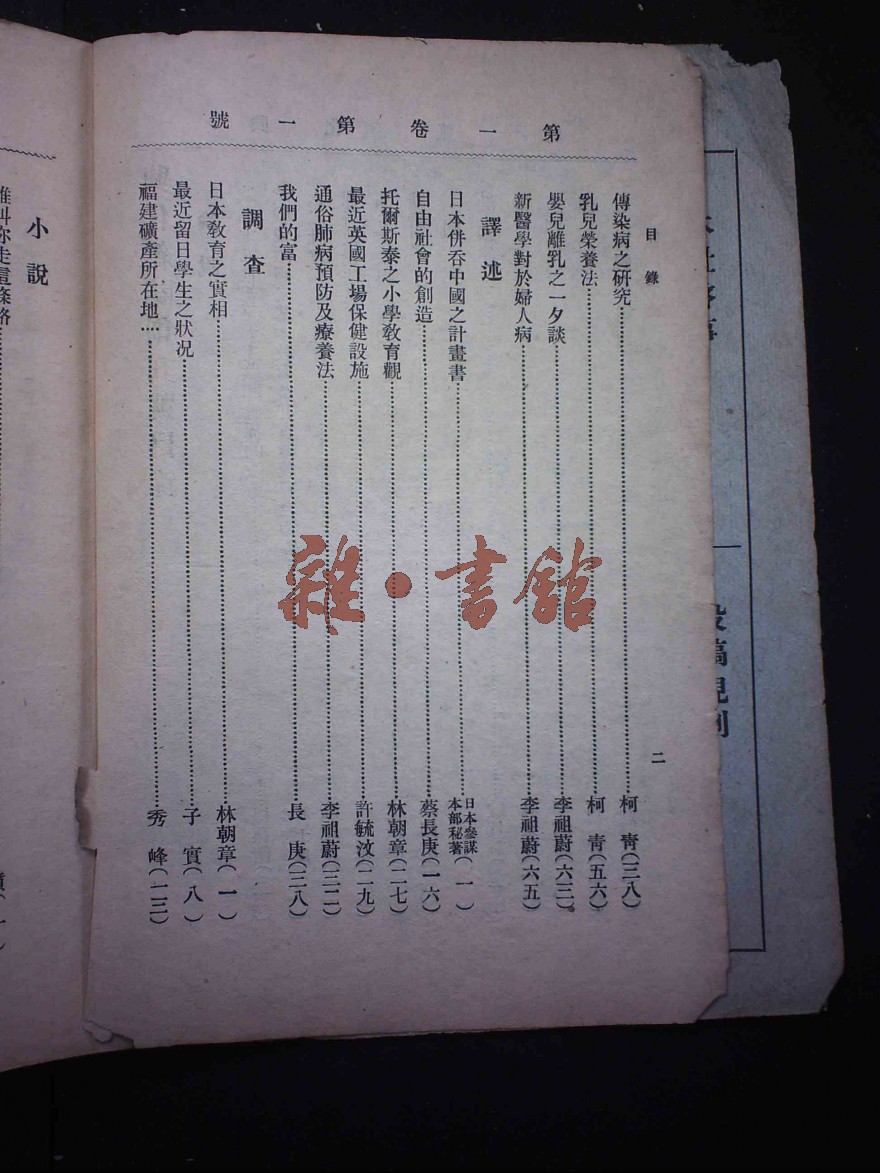 第一卷第一號
目錄
二
傳染病之研究……柯青(三八)
乳兒榮養法……柯青(五六)
嬰兒離乳之一夕談……李祖蔚(六三)
新醫學對於婦人病……李祖蔚(六五)
譯述
日本併吞中國之計畫書……日本參謀本部秘著(一)
自由社會的創造……蔡長庚(一六)
托爾斯泰之小學教育觀……林朝章(二七)
最近英國工場保健設施……許毓汶(二九)
通俗肺病預防及療養法……李祖蔚(三二)
我們的富……長庚(三八)
調查
日本教育之實相……林朝章(一)
最近留日學生之狀況……子實(八)
福建礦產所在地……秀峰(一三)
小說
投稿規則
雜·書館